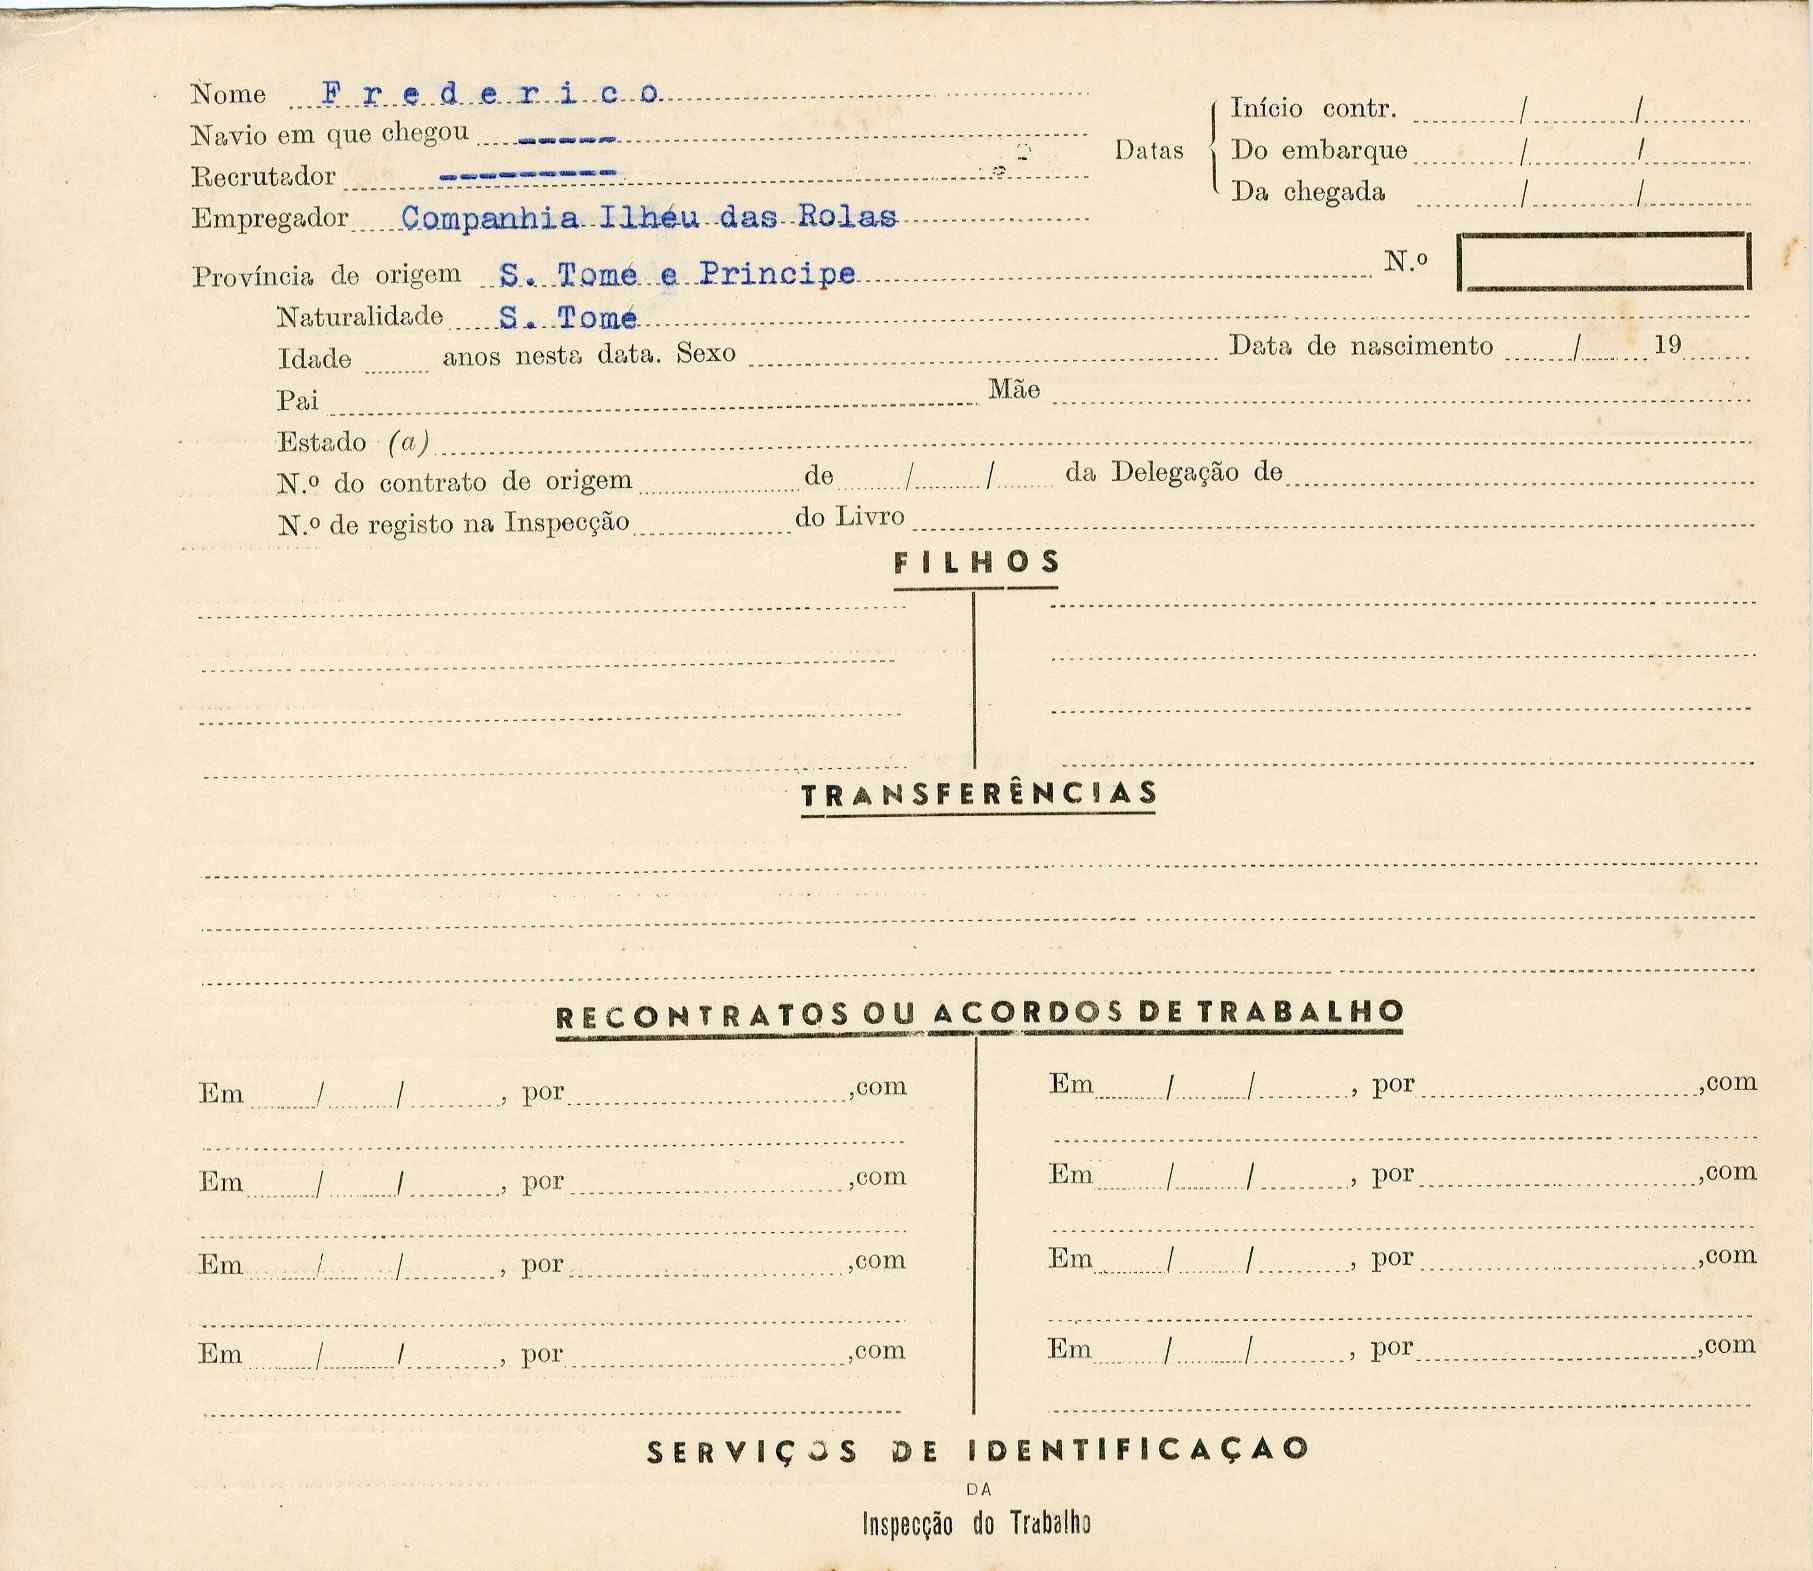 Nome F r e d e r i c o
Navio em que chegou -----
Recrutador ---------
Empregador Companhia Ilhéu das Rolas
Datas { Início contr. / /
Do embarque / /
Da chegada / /
Província de origem S. Tomé e Principe N.º
Naturalidade S. Tomé
Idade anos nesta data. Sexo Data de nascimento / 19
Pai Mãe
Estado (a)
N.º do contrato de origem de / / da Delegação de
N.º de registo na Inspecção do Livro
FILHOS
TRANSFERÊNCIAS
RECONTRATOS OU ACORDOS DE TRABALHO
Em / / , por ,com
Em / / , por ,com
Em / / , por ,com
Em / / , por ,com
Em / / , por ,com
Em / / , por ,com
Em / / , por ,com
Em / / , por ,com
SERVIÇOS DE IDENTIFICAÇAO
DA
Inspecção do Trabalho